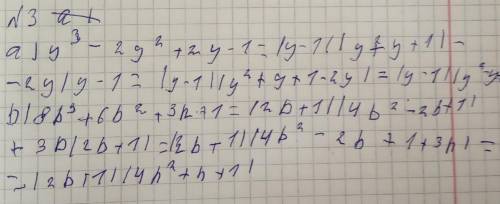 №3
a) y³ - 2y² + 2y - 1 = (y-1)(y²+y+1) -
- 2y(y-1) = (y-1)(y²+y+1-2y) = (y-1)(y²-y
b) 8b³ + 6b² + 3b + 1 = (2b+1)(4b²-2b+1)
+ 3b(2b+1) = (2b+1)(4b²-2b+1+3b) =
= (2b+1)(4b²+b+1)